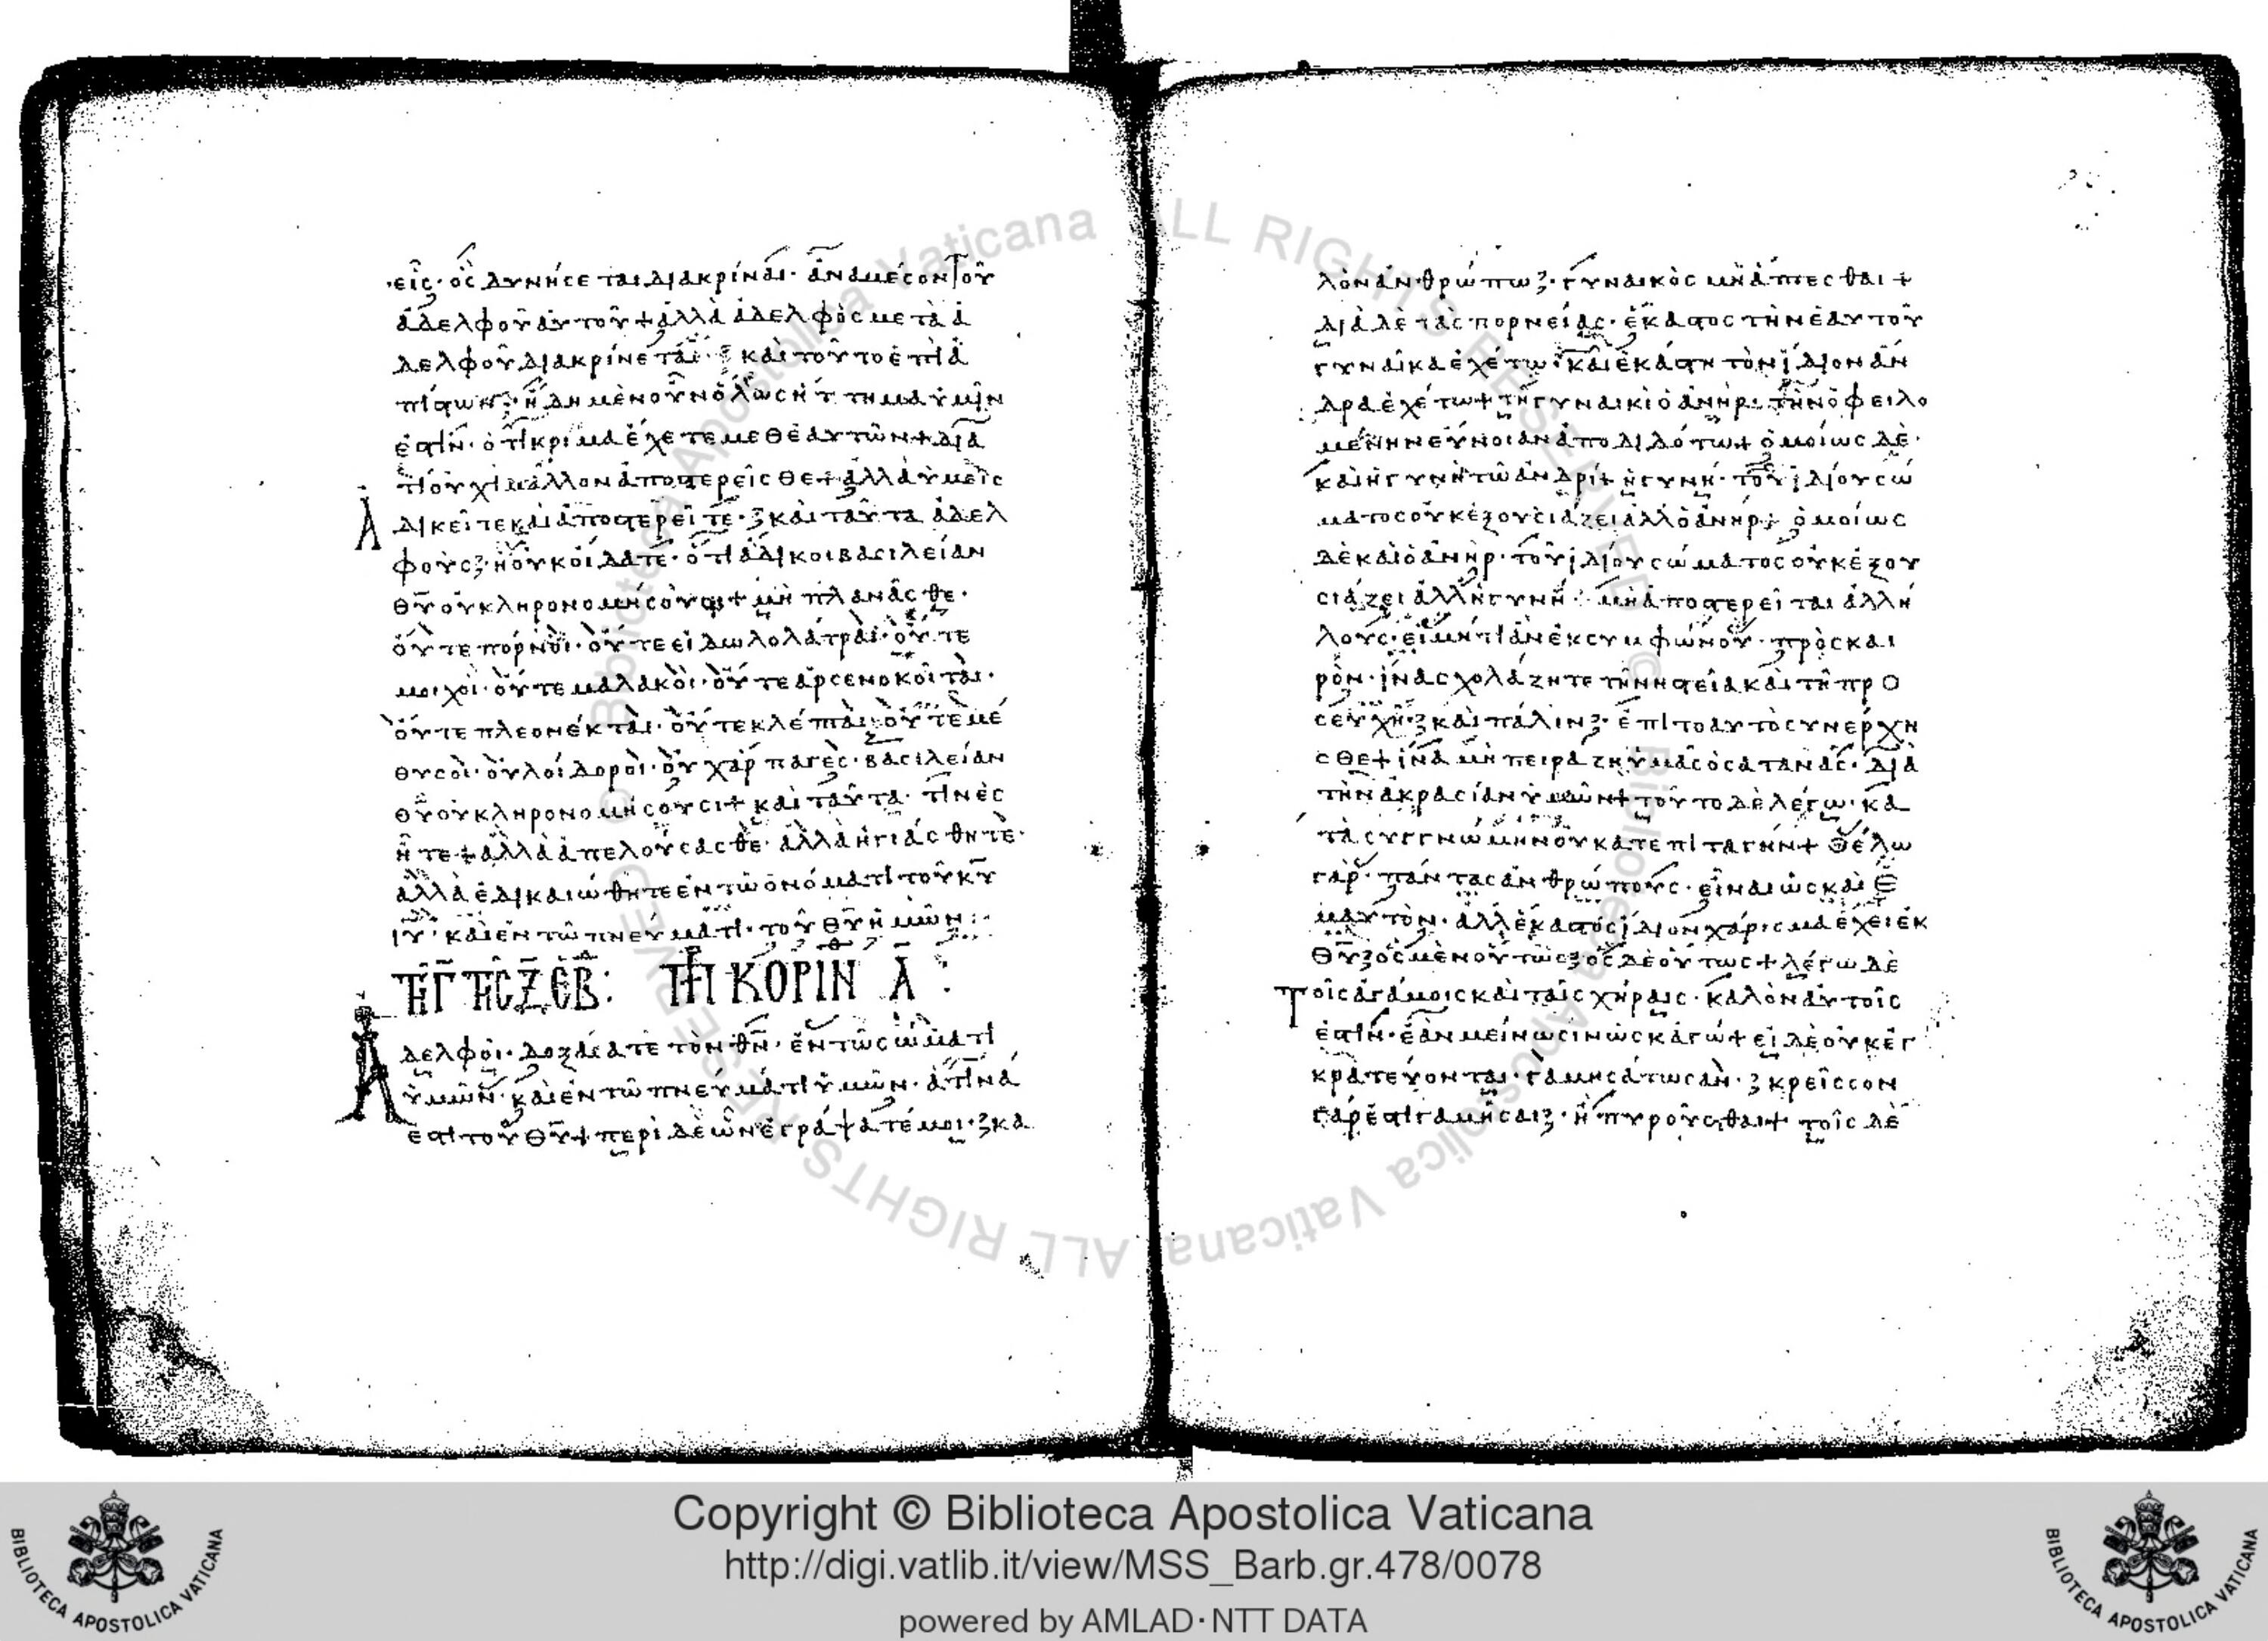 εἷς· ὃς δυνήσεται διακρῖναι· ἀναμέσον τοῦ
ἀδελφοῦ αὐτοῦ + ἀλλὰ ἀδελφὸς μετὰ ἀ
δελφοῦ διακρίνεται· καὶ τοῦτο ἐπὶ ἀ
πίστων· ἤδη μὲν οὖν ὅλως ἥττημα ὑμῖν
ἐστὶν· ὅτι κρίματα ἔχετε μεθ' ἑαυτῶν + διὰ
τί οὐχὶ μᾶλλον ἀποστερεῖσθε + ἀλλὰ ὑμεῖς
ἀδικεῖτε καὶ ἀποστερεῖτε· καὶ ταῦτα ἀδελ
φούς· ἢ οὐκ οἴδατε· ὅτι ἄδικοι βασιλείαν
θυ οὐ κληρονομήσουσι + μὴ πλανᾶσθε·
οὔτε πόρνοι· οὔτε εἰδωλολάτραι· οὔτε
μοιχοὶ· οὔτε μαλακοὶ· οὔτε ἀρσενοκοῖται·
οὔτε πλεονέκται· οὔτε κλέπται· οὔτε μέ
θυσοι· οὐ λοίδοροι· οὐχ ἅρπαγες· βασιλείαν
θυ οὐ κληρονομήσουσι + καὶ ταῦτα τινὲς
ἦτε + ἀλλὰ ἀπελούσασθε· ἀλλὰ ἡγιάσθητε·
ἀλλὰ ἐδικαιώθητε ἐν τῶ ὀνόματι τοῦ κυ
ιυ· καὶ ἐν τῶ πνεύματι· τοῦ θυ ἡμῶν:
ΤΗ Γ ΤΗΣ Ξ ΕΒ: ΠΡ ΚΟΡΙΝ Α:
Αδελφοὶ· δοξάσατε τὸν θν· ἐν τῶ σώματι
ὑμῶν· καὶ ἐν τῶ πνεύματι ὑμῶν· ἅτινά
ἐστι τοῦ θυ + περὶ δὲ ὧν ἐγράψατέ μοι· κα
λὸν ἀνθρώπω· γυναικὸς μὴ ἅπτεσθαι +
διὰ δὲ τὰς πορνείας· ἕκαστος τὴν ἑαυτοῦ
γυναῖκα ἐχέτω· καὶ ἑκάστη τὸν ἴδιον ἄν
δρα ἐχέτω + τῆ γυναικὶ ὁ ἀνὴρ· τὴν ὀφειλο
μένην εὔνοιαν ἀποδιδότω + ὁμοίως δὲ·
καὶ ἡ γυνὴ τῶ ἀνδρί + ἡ γυνή· τοῦ ἰδίου σώ
ματος οὐκ ἐξουσιάζει ἀλλ' ὁ ἀνήρ + ὁμοίως
δὲ καὶ ὁ ἀνὴρ· τοῦ ἰδίου σώματος οὐκ ἐξου
σιάζει ἀλλ' ἡ γυνή· μὴ ἀποστερεῖται ἀλλή
λους· εἰ μήτι ἂν ἐκ συμφώνου· πρὸς και
ρόν· ἵνα σχολάζητε τῆ νηστεία καὶ τῆ προ
σευχῆ· καὶ πάλιν· ἐπὶ τὸ αὐτὸ συνέρχη
σθε + ἵνα μὴ πειράζη ὑμᾶς ὁ σατανᾶς· διὰ
τὴν ἀκρασίαν ὑμῶν + τοῦτο δὲ λέγω· κα
τὰ συγγνώμην οὐ κατ' ἐπιταγήν + θέλω
γὰρ· πάντας ἀνθρώπους· εἶναι ὡς καὶ ἐ
μαυτόν· ἀλλ' ἕκαστος ἴδιον χάρισμα ἔχει ἐκ
θυ· ὃς μὲν οὕτως· ὃς δὲ οὕτως + λέγω δὲ
τοῖς ἀγάμοις καὶ ταῖς χήραις· καλὸν αὐτοῖς
ἐστὶν· ἐὰν μείνωσιν ὡς κἀγώ + εἰ δὲ οὐκ ἐγ
κρατεύονται· γαμησάτωσαν· κρεῖσσον
γάρ ἐστι γαμῆσαι· ἢ πυροῦσθαι + τοῖς δὲ
Copyright © Biblioteca Apostolica Vaticana
http://digi.vatlib.it/view/MSS_Barb.gr.478/0078
powered by AMLAD·NTT DATA